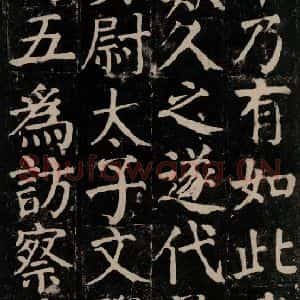 乃有如此
久之遂代
尉太子文
五爲訪察
shufawang.CN